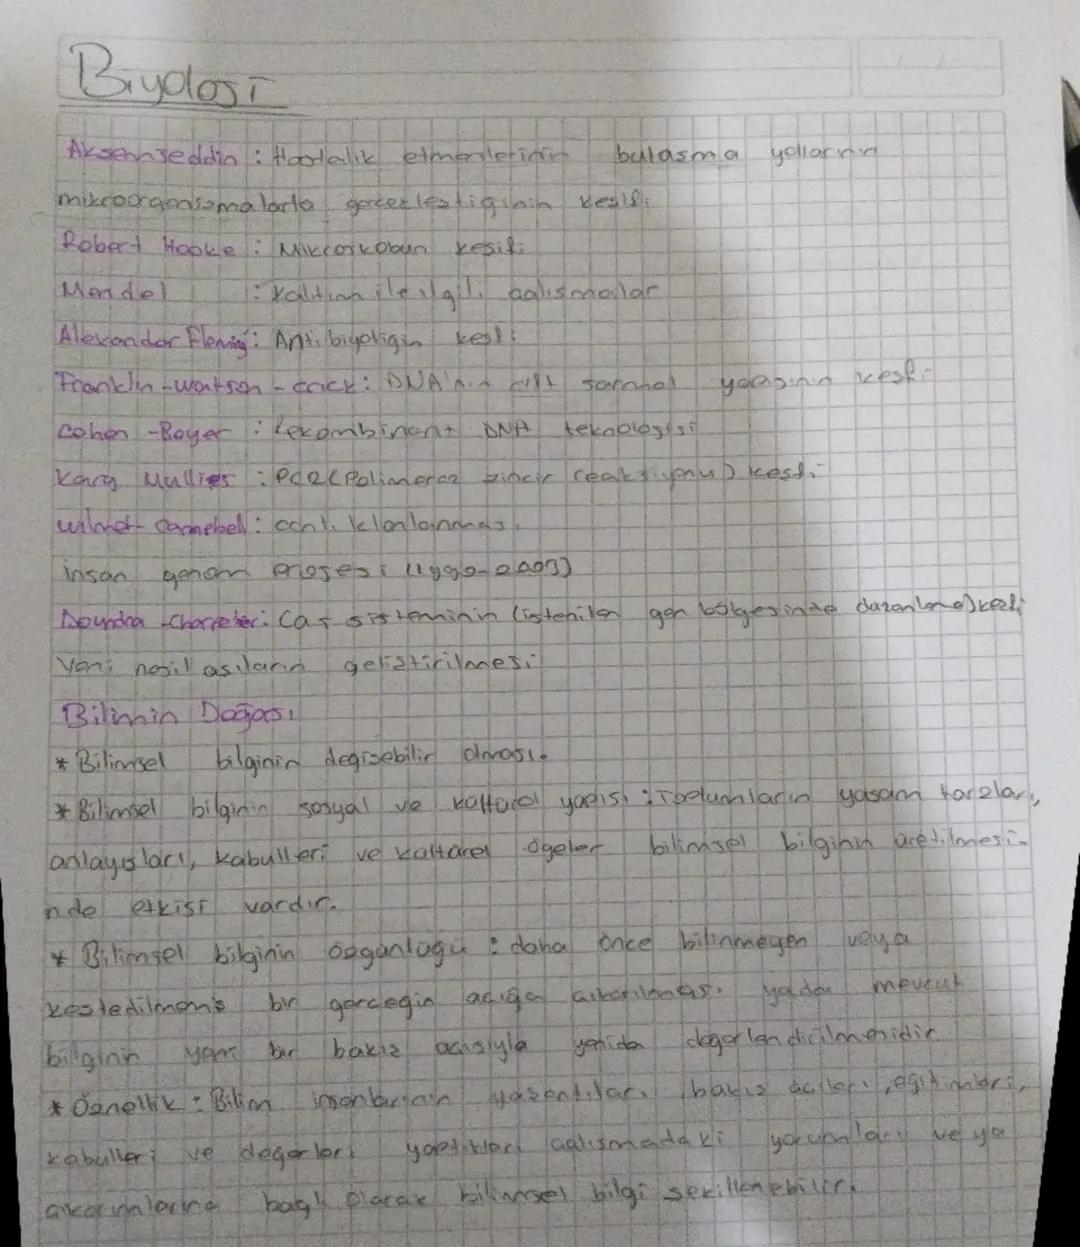 Biyoloji
Aksemseddin : Hastalik etmenlerinin bulasma yollarının
mikroorganizmalarla gerceklestiginin kesifi
Robert Hooke : Mikroskobun kesifi
Mendel : kalıtım ile ilgili calısmalar
Alexandar Fleming : Antibiyotigin kesfi
Franklin - watson - crick : DNA'nın cift sarmal yapısının kesfi
cohen - Boyer : rekombinant DNA teknolojisi
Kary Mullies : PCR (Polimeraz zincir reaksiyonu) kesfi
wilmot - Campbell : canlı klonlanması
insan genom projesi (1990-2003)
Doundna - Charpetier : Cas sisteminin (istenilen gen bölgesinde düzenleme) kesfi
Yeni nesil asıların gelistirilmesi
Bilimin Doğası
* Bilimsel bilginin degisebilir olması.
* Bilimsel bilginin sosyal ve kültürel yapısı : Toplumların yasam tarzları,
anlayısları, kabulleri ve kültürel ögeler bilimsel bilginin üretilmesi-
nde etkisi vardır.
* Bilimsel bilginin özgünlügü : daha önce bilinmeyen veya
kesfedilmemis bir gercegin acıga cıkarılması. yada mevcut
bilginin yeni bir bakıs acısıyla yeniden degerlendirilmesidir
* Öznellik : Bilim insanlarının yasantıları, bakıs acıları, egitimleri,
kabulleri ve degerleri yaptıkları calısmadaki yorumları veya
cıkarımlarına baglı olarak bilimsel bilgi sekillenebilir.